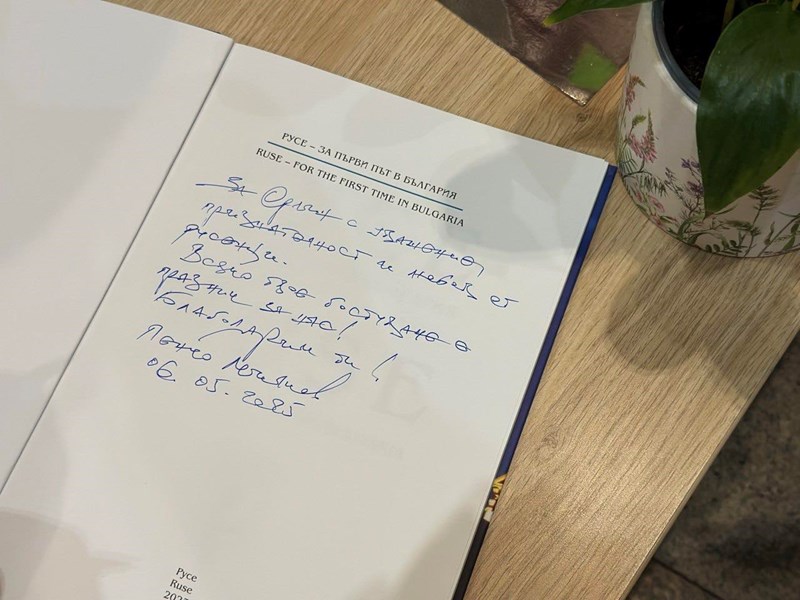 РУСЕ – ЗА ПЪРВИ ПЪТ В БЪЛГАРИЯ
RUSE – FOR THE FIRST TIME IN BULGARIA
За Орлин с уважение,
признателност и любов от
русенци.
Всяко твое гостуване е
празник за нас!
Благодарим ти!
Пенчо Милков
06. 05. 2025
Русе
Ruse